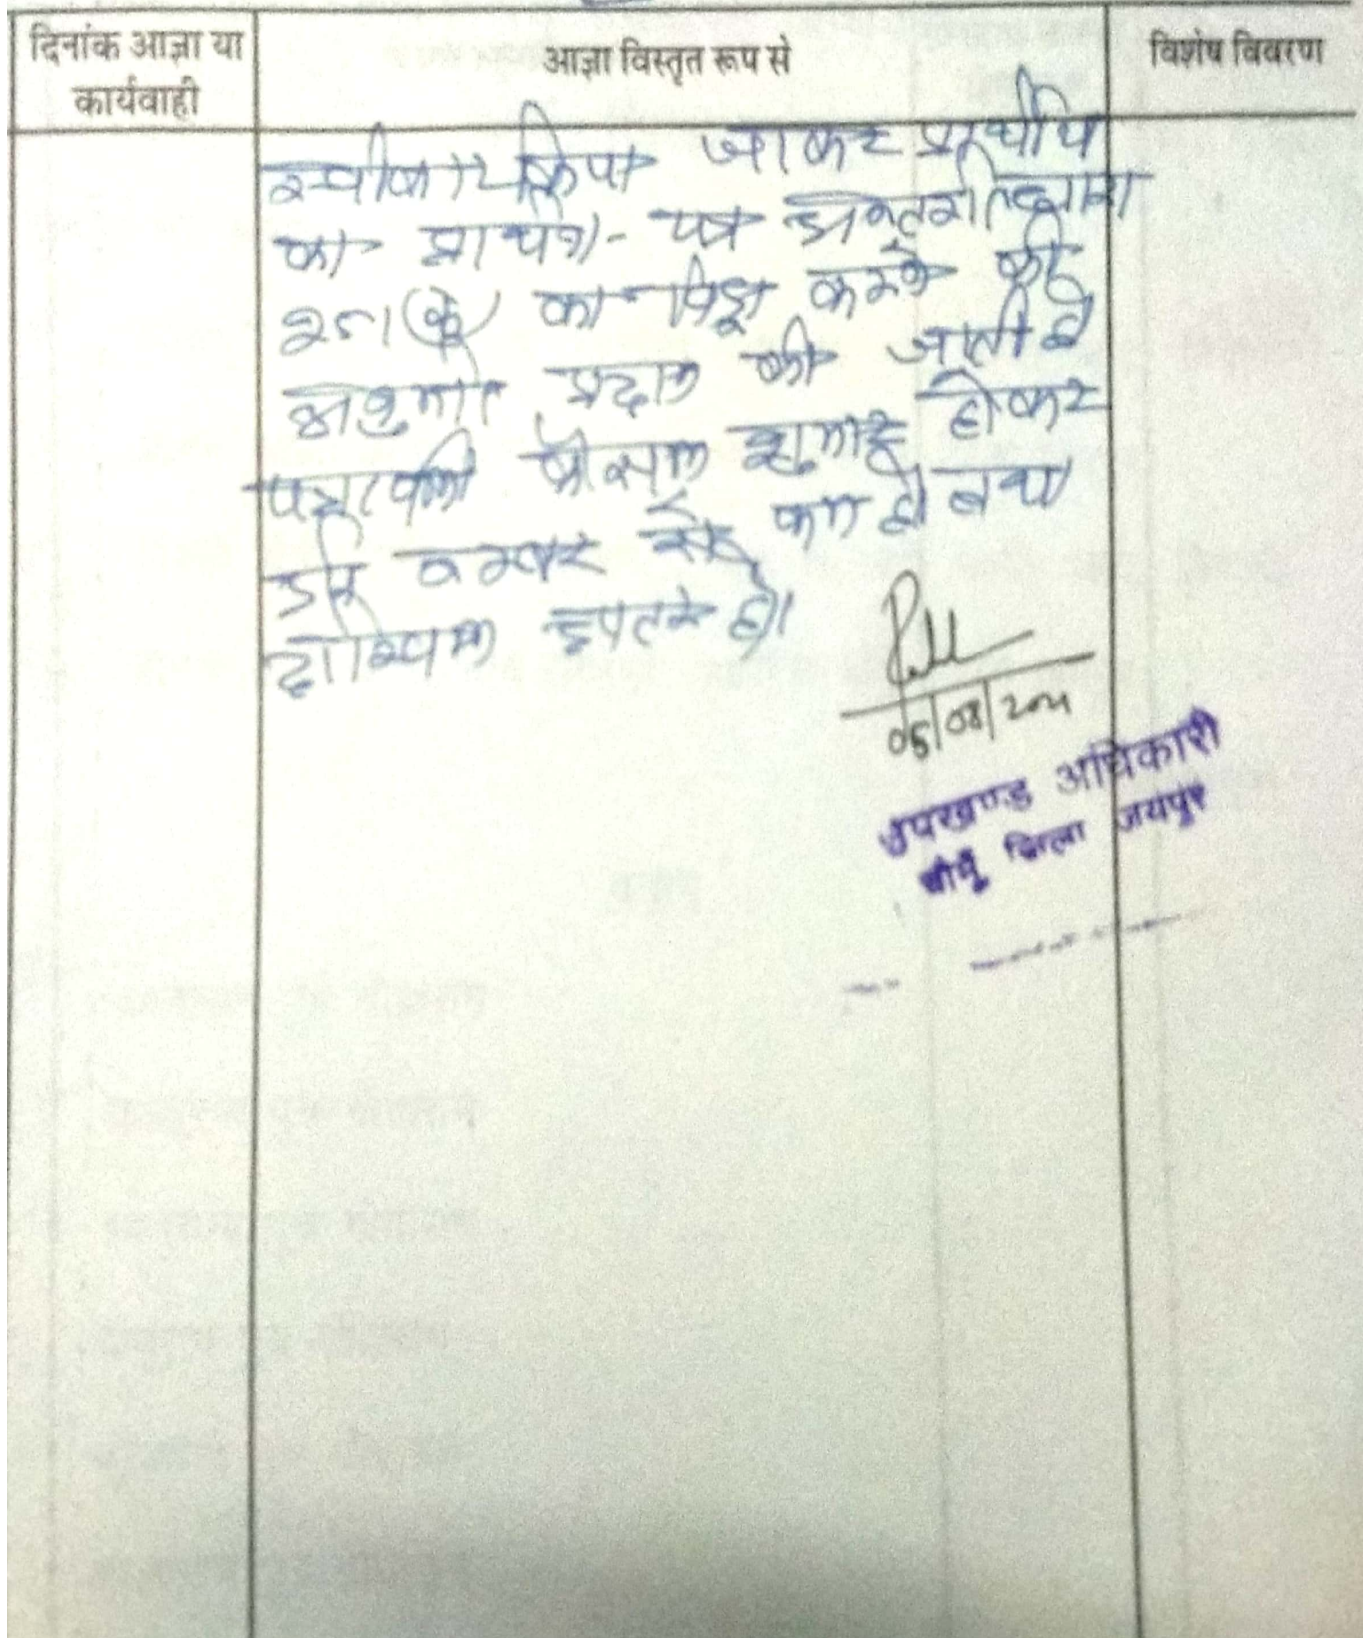 दिनांक आज्ञा या
कार्यवाही
आज्ञा विस्तृत रूप से
विशेष विवरण
स्वीकार किया जाकर प्रार्थीय
का प्रार्थना-पत्र अन्तर्गत धारा
251(क) का विड्रा करने की
अनुमति प्रदान की जाती है
पत्रावली फैसल शुमार होकर
नम्बर से कम हो बाद
दाखिल दफ्तर हो।
05/08/2021
उपखण्ड अधिकारी
चौमूँ जिला जयपुर